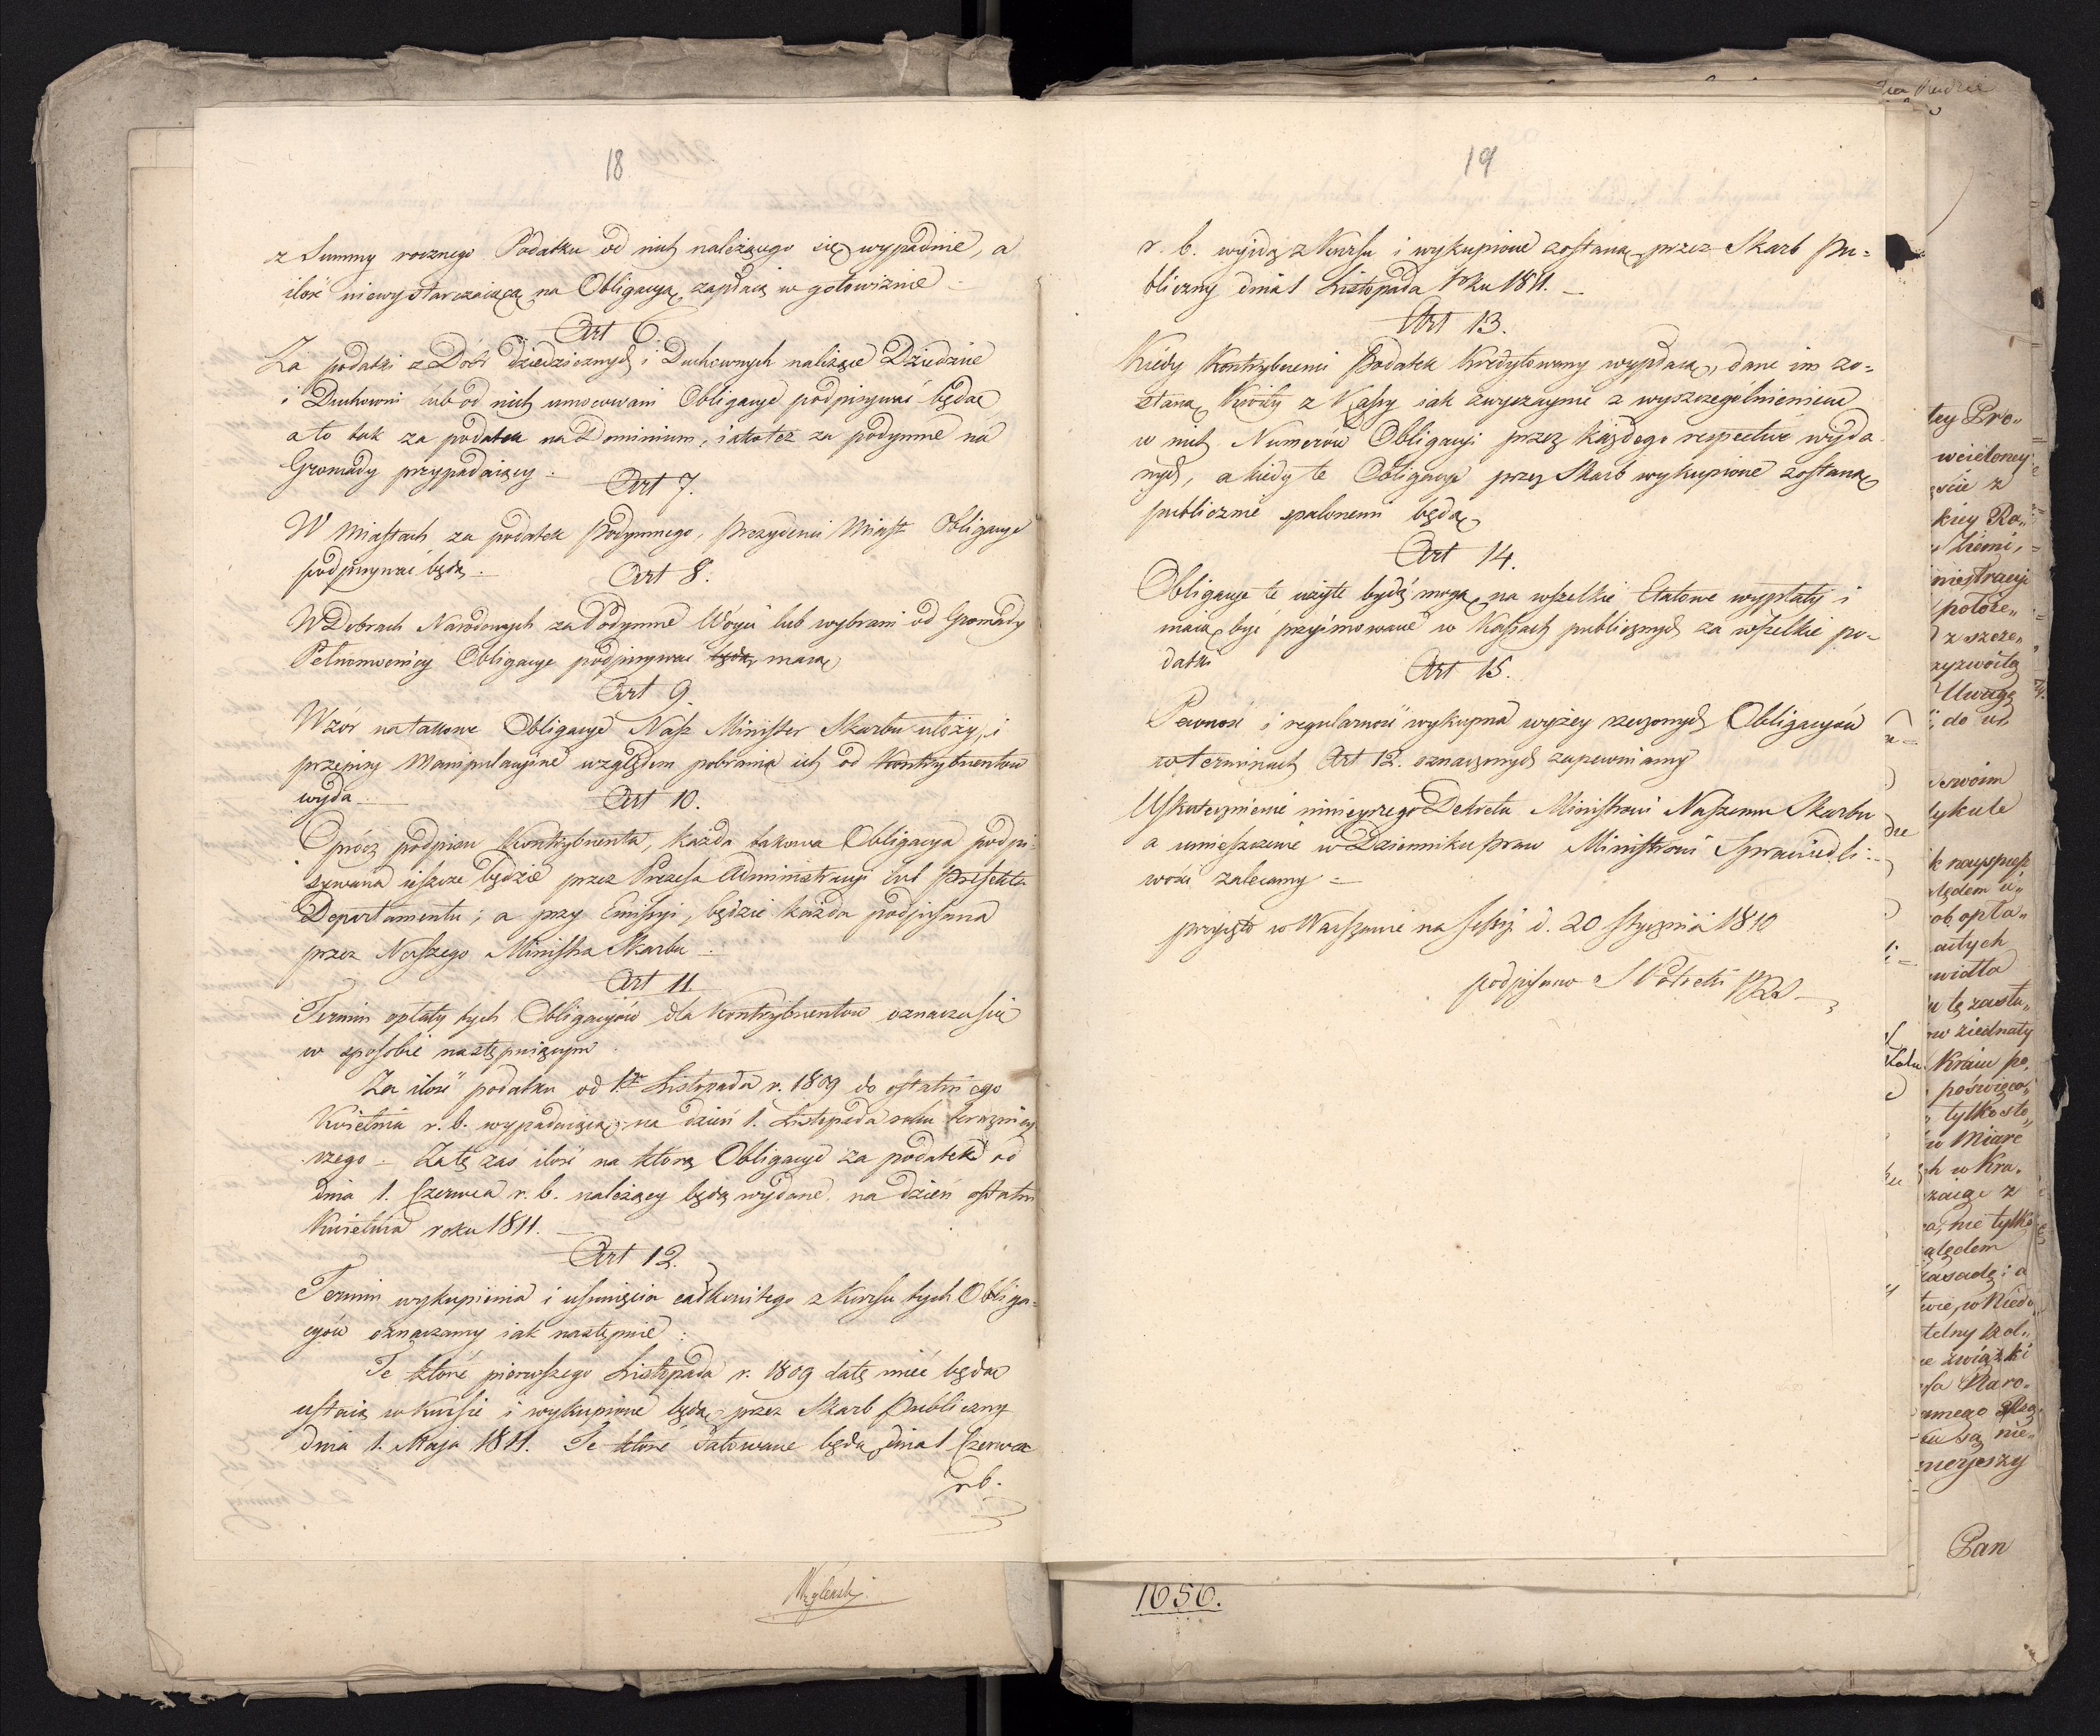 18
z Summy rocznego Podatku od nich należącego się wypadnie, a
ilość niewystarczaiącą na Obligacyą zapłacą w gotowiznie
Art 6
Za podatki z Dóbr dziedzicznych i Duchownych należące Dziedzice
i Duchowni lub od nich umocowani Obligacye podpisywać będą
a to tak za podatek na Dominium, iakoteż za podymne na
Gromady przypadaiący.
Art 7.
W Miastach za podatek Podymnego, Prezydenci Miast Obligacye
podpisywać będą.
Art 8.
W Dobrach Narodowych za Podymne Wóyci lub wybrani od Gromady
Pełnomocnicy Obligacye podpisywać będą maią
Art 9.
Wzór na takowe Obligacye Nasz Minister Skarbu ułoży, i
przepisy Manipulacyine względem pobrania ich od Kontrybuentów
wyda
Art 10.
Oprócz podpisu Kontrybuenta, każda takowa Obligacya podpi-
sywana ieszcze będzie przez Prezesa Administracyi lub Prefekta
Departamentu; a przy Emissyi, będzie każda podpisana
przez Naszego Ministra Skarbu
Art 11.
Termin opłaty tych Obligacyów dla Kontrybuentów oznacza się
w sposobie następuiącym
Za ilość podatku od 1go Listopada r. 1809 do ostatniego
Kwietnia r. b. wypadaiącą na dzień 1. Listopada roku teraźniey-
szego - Za tę zaś ilość na którą Obligacye za podatek od
dnia 1. Czerwca r. b. należący będą wydane na dzień ostatni
Kwietnia roku 1811.
Art 12.
Termin wykupienia i usunięcia całkowitego z kursu tych Obliga-
cyów oznaczamy iak następnie:
Te które pierwszego Listopada r. 1809 datę mieć będą
ustaią w kursie i wykupione będą przez Skarb Publiczny
dnia 1. Maja 1811. Te które datowane będą dnia 1 Czerwca
r. b.
19
r. b. wyidą z Kursu i wykupione zostaną przez Skarb Pu=
bliczny dnia 1 Listopada Roku 1811.
Art 13.
Kiedy Kontrybuenci Podatek Kredytowany wypłacą, dane im zo=
staną Kwity z Kassy iak zwyczaynie z wyszczególnieniem
w nich Numerów Obligacyi przez każdego respective wyda
nych, a kiedy te Obligacye przez Skarb wykupione zostaną
publicznie spalonemi będą
Art 14.
Obligacye te użyte bydź mogą na wszelkie Etatowe wypłaty i
maią być przyimowane w Kassach publicznych za wszelkie po=
datki
Art 15.
Pewność i regularność wykupna wyżey rzeczonych Obligacyów
w terminach Art 12. oznaczonych zapewniamy
Uskutecznienie ninieyszego Dekretu Ministrowi Naszemu Skarbu
a umieszczenie w Dzienniku praw Ministrowi Sprawiedli=
wości zalecamy =
przyięto w Warszawie na Sessyi d. 20 stycznia 1810
podpisano S Potocki PRS
1656.
tey Pro„
wcieloney
kiey Ra„
Ziemi,
połoze„
z szcze„
Uwagę
swoim
tykule
ob opła„
w ziednały
Kraiu po„
poświęco„
tylko sto„
w Miarę
ch w Kra„
a, nie tylko
zasadę; a
związki
Naro„
Pan